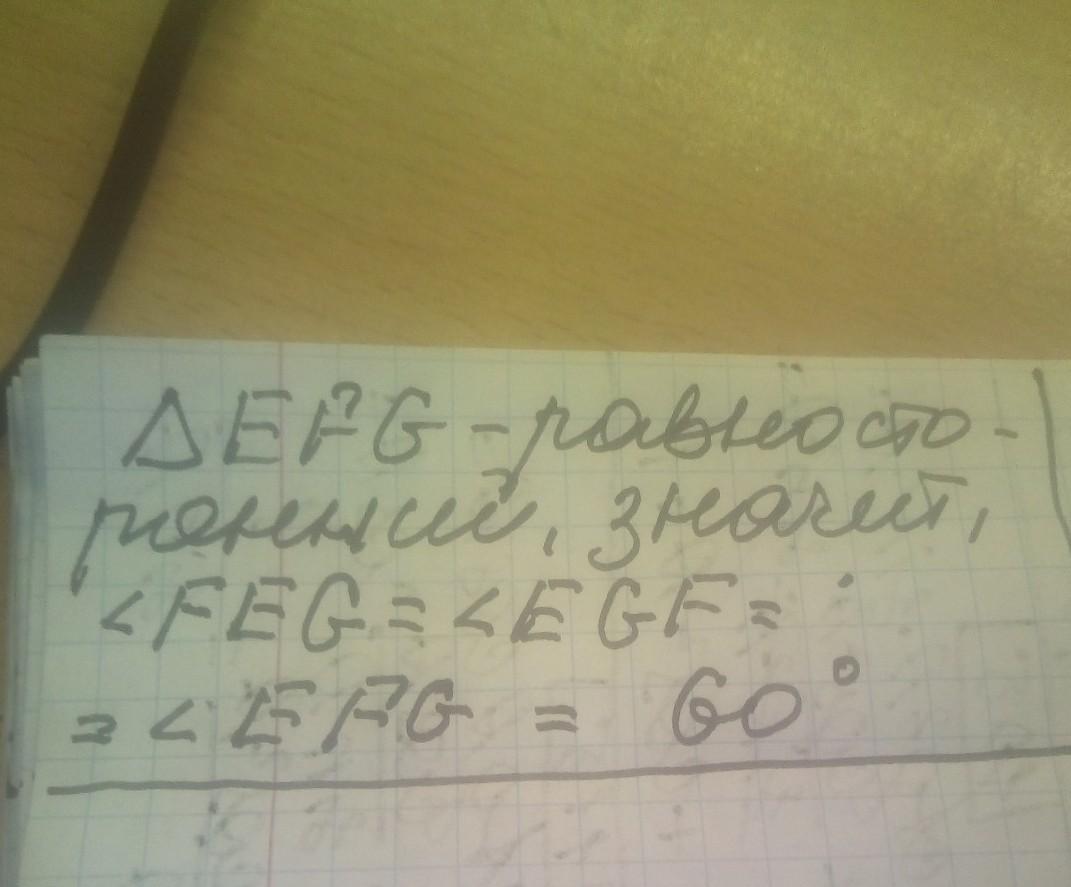 ΔEFG - равносто-
ронний, значит,
<FEG = <EGF =
= <EFG = 60°